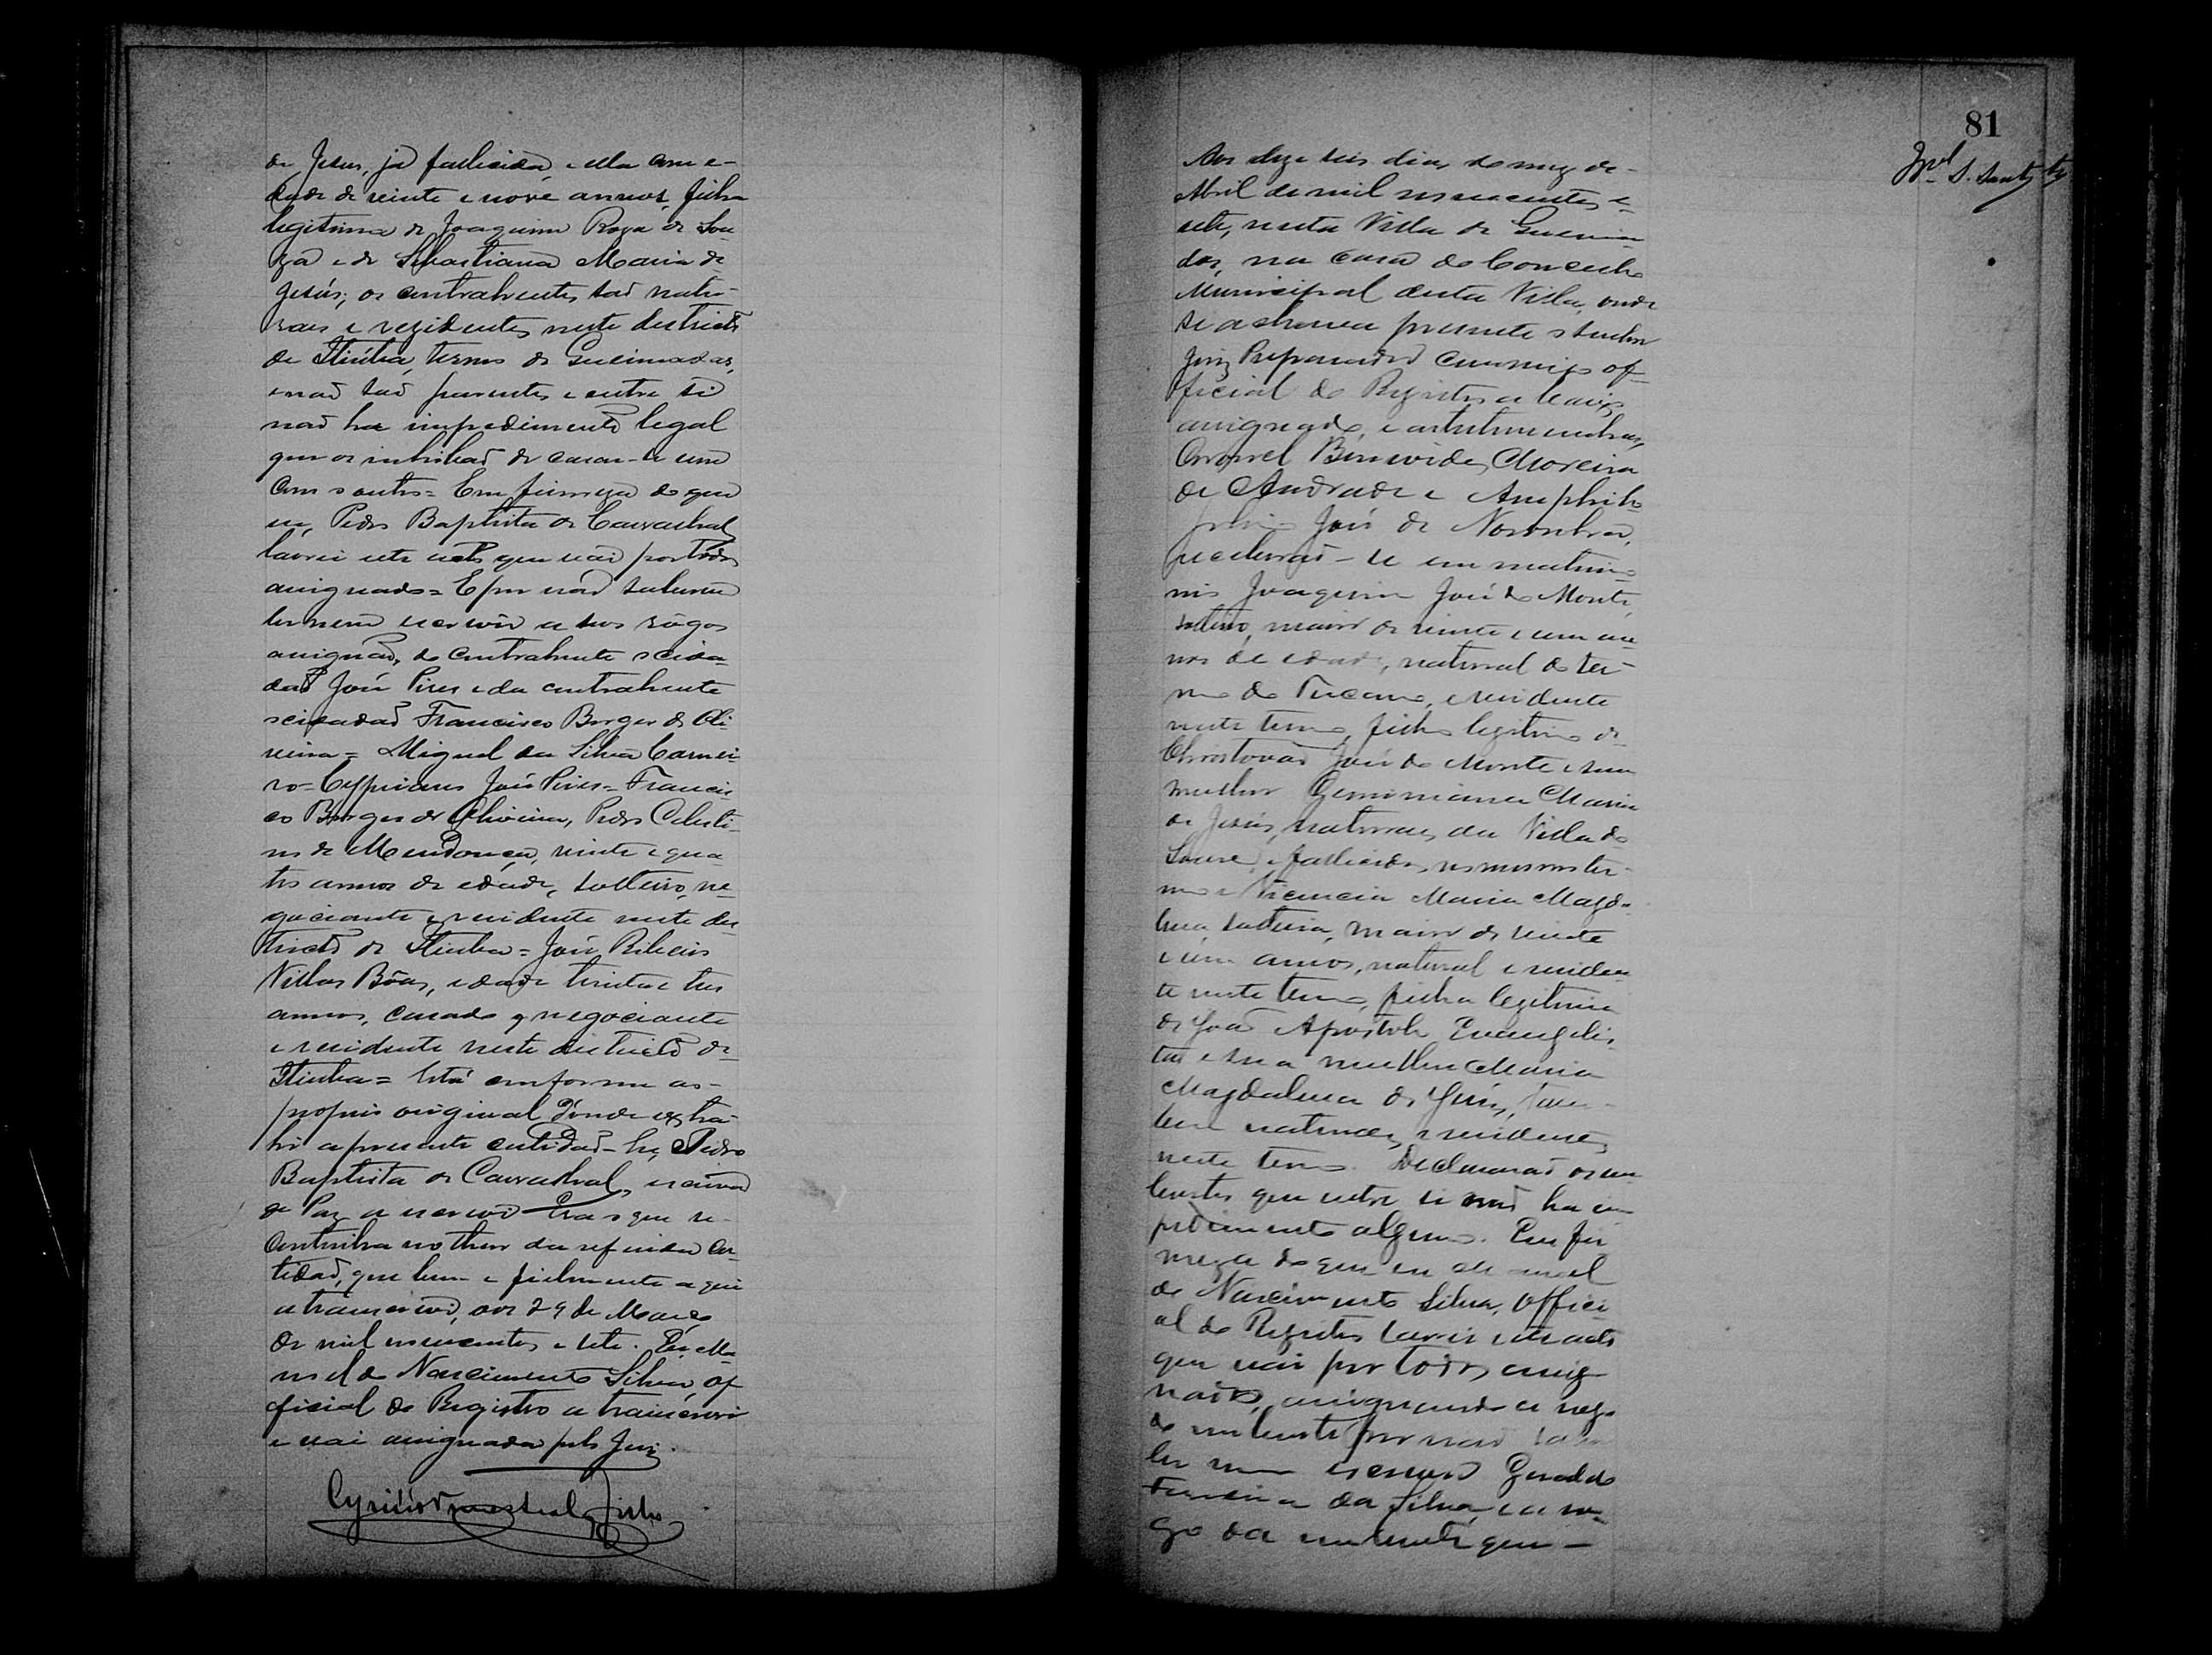 de Jesus, já fallecida, e ella com e-
dade de vinte e nove annos, filha
legitima de Joaquim Roza de Sou-
za e de Sebastiana Maria de
Jesús; os contrahentes saõ natu-
raes e rezidentes neste districto
de Itiúba, termo de Queimadas,
e naõ saõ parentes e entre si
naõ ha impedimento legal
que os inhibaõ de casar-se um
com o outro = Em firmeza do que
eu, Pedro Baptista de Carvalhal,
lavrei este acto que vai por todos
assignado = E por naõ saberem
ler nem escrever a seos rógos
assignaõ, do contrahente o cida-
daõ José Pires e da contrahente
o cidadaõ Francisco Borges de Oli-
veira = Miguel da Silva Carnei-
ro = Cypriano José Pires = Francis-
co Borges de Oliveira, Pedro Celesti-
no de Mendonça, vinte e qua
tro annos de edade, solteiro, ne
gociante e residente neste dis
tricto de Itiuba = José Ribeiro
Villas Bôas, edade trinta e tres
annos, casado, negociante
e residente neste districto de
Itiuba = Está conforme ao
proprio original d'onde extra-
hi a presente certidaõ = Eu, Pedro
Baptista de Carvalhal, escrivaõ
de Paz a escrevi Era o que se
continha no theor da referida cer
tidaõ, que bem e fielmente aqui
a transcrevi, aos 29 de Março
de mil novecentos e sete. Eu, Ma-
noel do Nascimento Silva, of
ficial do Registro a transcrevi
e vai assignada pelo Juiz.
81
Aos deze seis dias do mez de
Abril de mil novecentos e
sete, nesta Villa de Queima
das, na casa do Conselho
Municipal desta Villa, onde
se achava presente o senhor
Juiz Preparador commigo of-
ficial do Registro a baixo
assignado, e as testemunhas,
Coronel Benevides Moreira
de Andrade e Amphilo
phio José de Noronha,
receberaõ-se em matrimo
nio Joaquim José do Monte,
solteiro, maior de vinte e um an
nos de edade, natural do ter-
mo do Tucano, e residente
neste termo, filho legitimo de
Christovaõ José do Monte e sua
mulher Geminiana Maria
de Jesús, naturaes da Villa do
Soure, e fallecidos no mesmo ter-
mo e Vicencia Maria Magda
lena, solteira, maior de vinte
e um annos, natural e residen
te neste termo, filha legitima
de Joaõ Apostolo Evangelis
ta e sua mulher Maria
Magdalena de Jesús, tam-
bem naturaes e residentes
neste termo. Declararaõ os nu
bentes que entre si naõ ha im
pedimento algum. Em fir
meza do que eu Manoel
do Nascimento Silva, Offici
al do Registro lavrei este acto
que vai por todos assig
nados, assignando a rogo
do nubente por naõ saber
ler nem escrever Geraldo
da Silva, e a ro-
go da nubente que